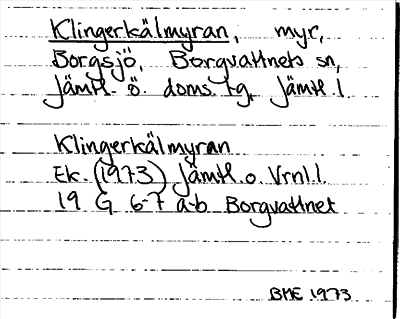 Klingerkälmyran, myr,
Borgsjö, Borgvattnets sn,
Jämtl. ö. doms. tg, Jämtl. l.
Klingerkälmyran
Ek. (1973) Jämtl. o. Vrnl. l.
19 G 6-7 a-b Borgvattnet
BME 1973